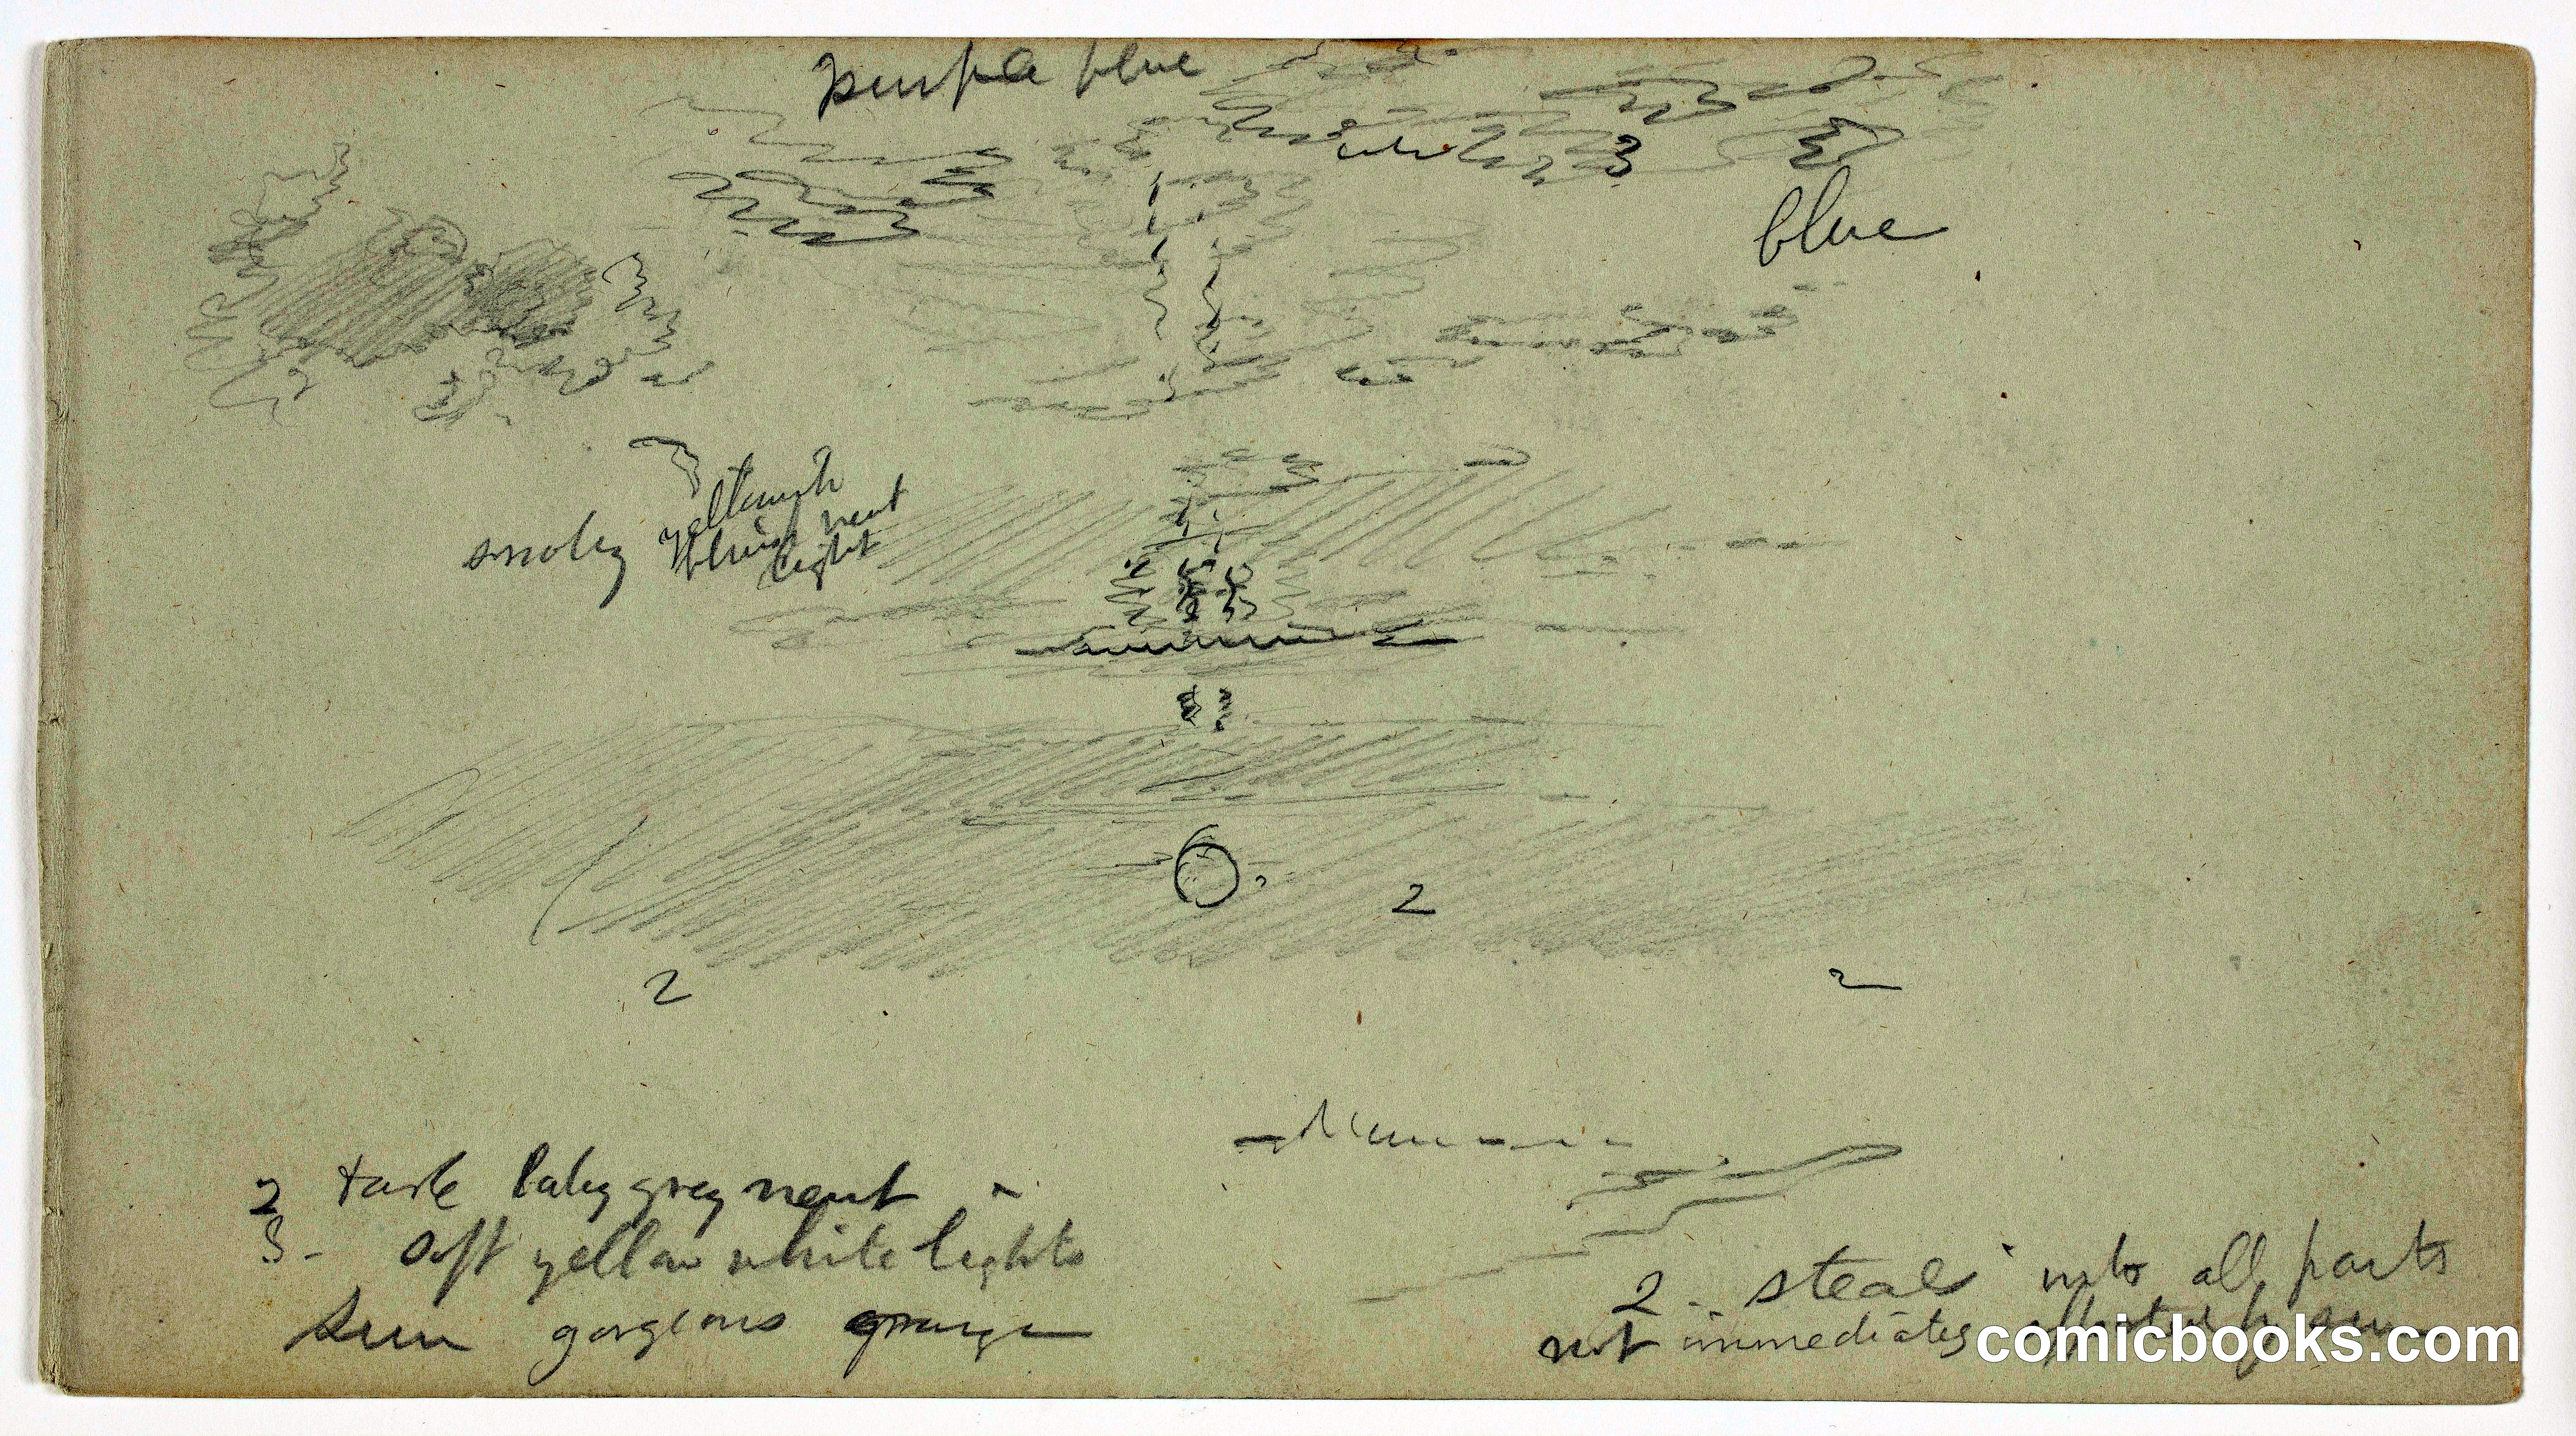 purple blue
3
blue
smoky
neut
light
2
2
2
2 dark hazy grey neut
3 - soft yellow white lights
Sun gorgeous orange
2 - steals into all parts
not immediately by sun
comicbooks.com